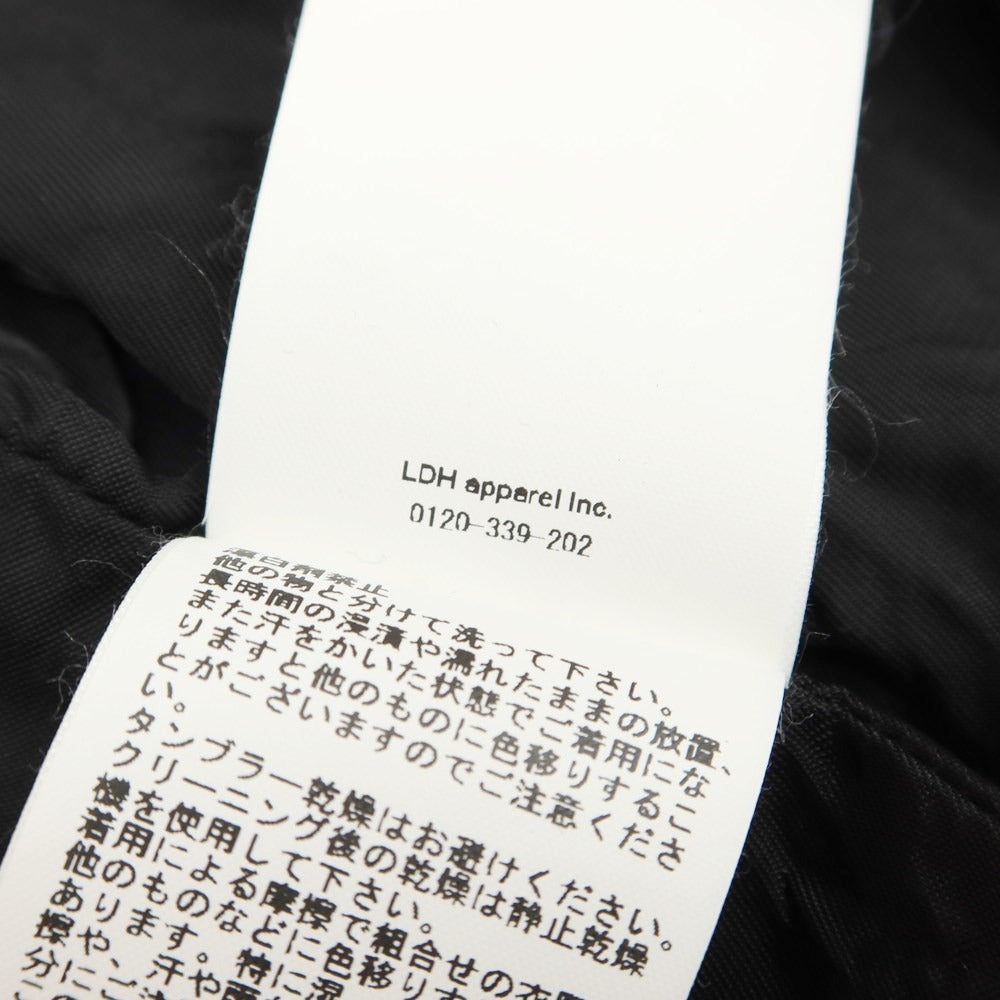 LDH apparel Inc.
0120-339-202
漂白剤禁止
他の物と分けて洗って下さい。
長時間の浸漬や濡れたままの放置、
また汗をかいた状態でご着用にな
りますと他のものに色移りするこ
とがございますのでご注意くださ
い。
タンブラー乾燥はお避けください。
クリーニング後の乾燥は静止乾燥
機を使用して下さい。
着用による摩擦で組合せの衣
他のものなどに色移り
あります。汗や雨
擦や、特に湿
分にご